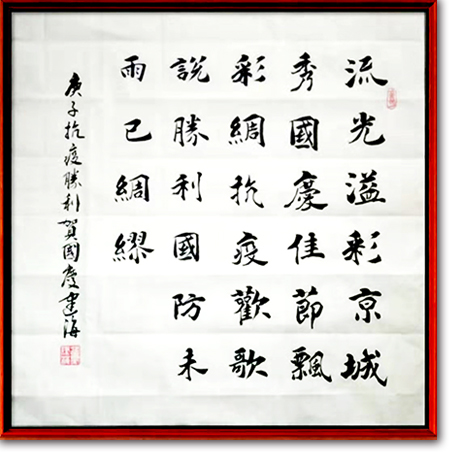 流光溢彩京城
秀國慶佳節飄
彩綢抗疫歡歌
說勝利國防未
雨已綢繆
庚子抗疫勝利賀國慶建海